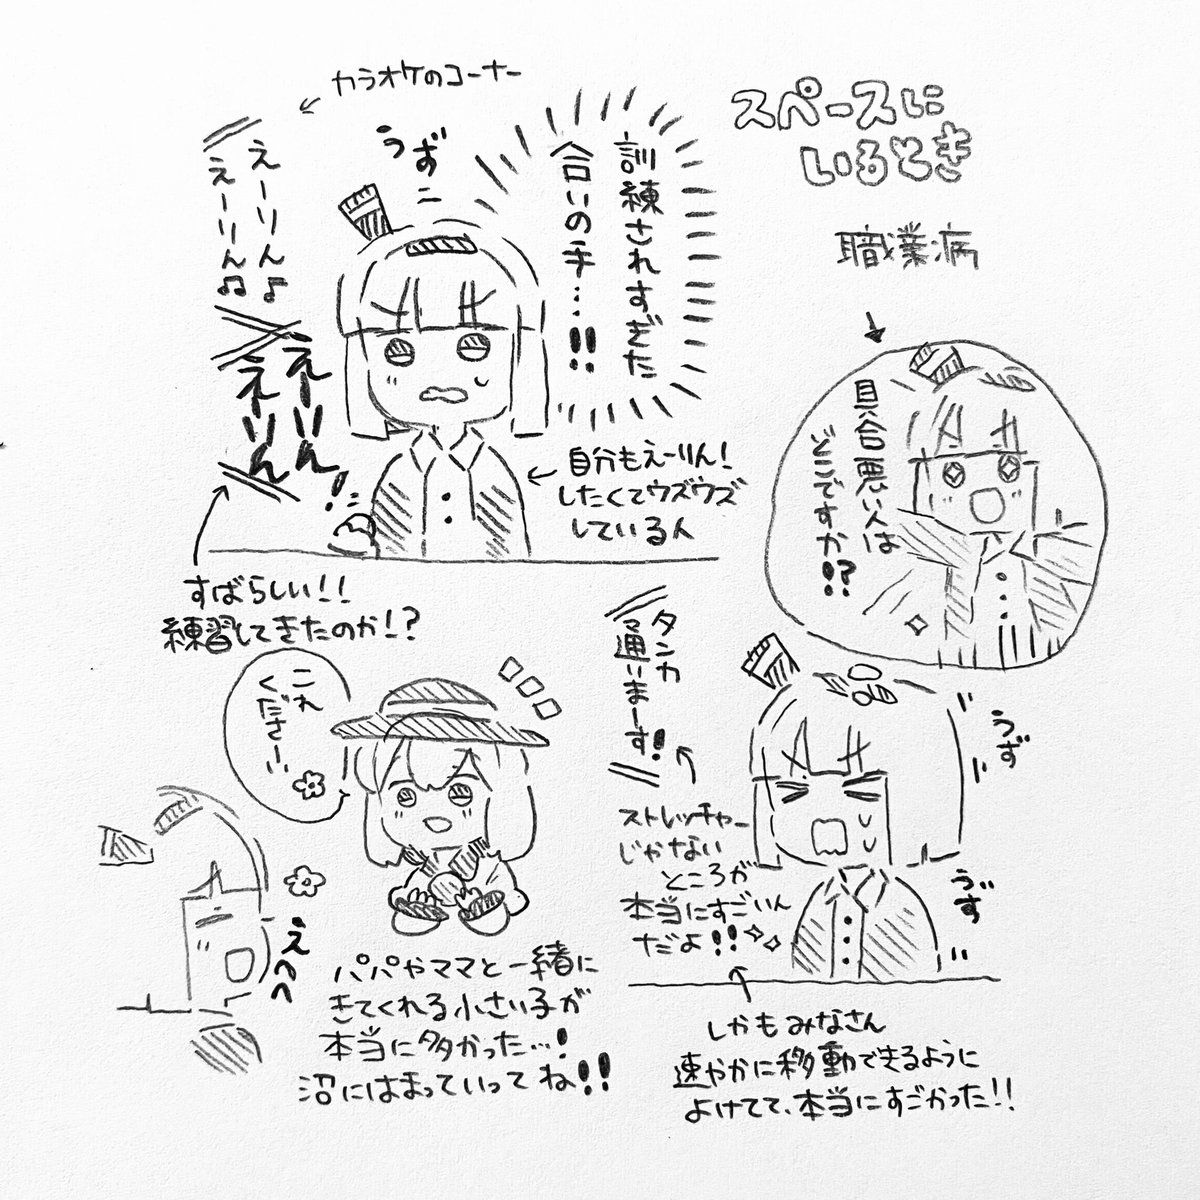 スペースに
いるとき
職業病
カラオケのコーナー
訓練されすぎた
合いの手…!!
うずー
えーりん♪
えーりん♫
えーりん!
えーりん!
自分もえーりん!
したくてウズウズ
している人
すばらしい!!
練習してきたのか!?
具合悪い人は
どこですか!?
タンカ
通いまーす!
うず
うず
ストレッチャー
じゃない
ところが
本当にすごいん
だよ!!
しかもみなさん
速やかに移動できるように
よけてて、本当にすごかった!!
これ
くださーい
えへへ
パパやママと一緒に
きてくれる小さい子が
本当に多かった…!
沼にはまっていってね!!